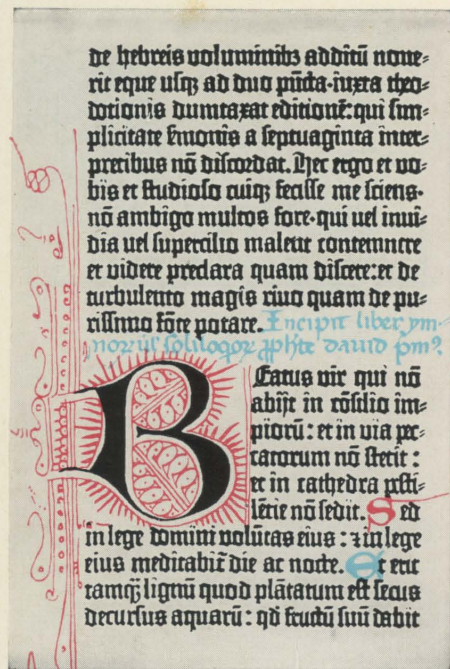 de hebreis voluminibꝫ additū noue⸗
rit eque usqꝫ ad duo pūcta·iuxta theo⸗
dotionis dumtaxat editionē: qui sim⸗
plicitate sermonis a septuaginta inter⸗
pretibus nō discordat. Hec ergo et vo⸗
bis et studioso cuiqꝫ fecisse me sciens·
nō ambigo multos fore·qui uel inui⸗
dia uel supercilio malent contemnere
et videre preclara quam discere: et de
turbulento magis rivo quam de pu⸗
rissimo fōte potare. Incipit liber ym⸗
norū soliloqorꝫ ꝓphēte dauid pm⁹.
Beatus vir qui nō
abijt in cōsilio im⸗
piorū: et in via pec⸗
catorum nō stetit:
et in cathedra pesti⸗
lētie nō sedit. Sed
in lege domini volūtas eius: ⁊ in lege
eius meditabiť die ac nocte. Et erit
tamqꝫ lignū quod plātatum est secus
decursus aquarū: qd̄ fructū suū dabit